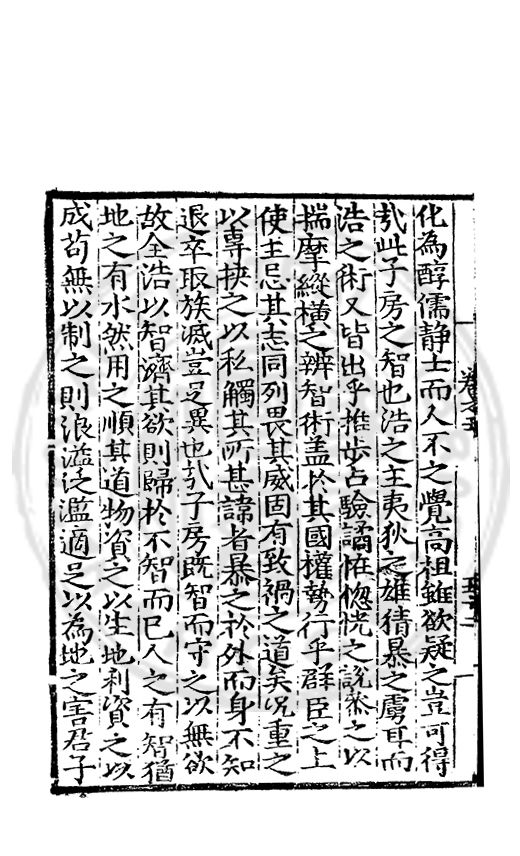 化為醇儒静士而人不之覺高祖雖欲疑之豈可得
㢤此子房之智也浩之主夷狄之雄猜暴之虜耳而
浩之術又皆出乎推步占驗譎恠惚恍之說叅之以
揣摩縱横之辨智術盖於其國權勢行乎群臣之上
使主忌其志同列畏其威固有致禍之道矣况重之
以專抉之以私觸其所甚諱者暴之於外而身不知
退卒取族滅豈足異也㢤子房既智而守之以無欲
故全浩以智濟其欲則歸於不智而已人之有智猶
地之有水然用之順其道物資之以生地利資之以
成苟無以制之則浪溢泛濫適足以為地之害君子